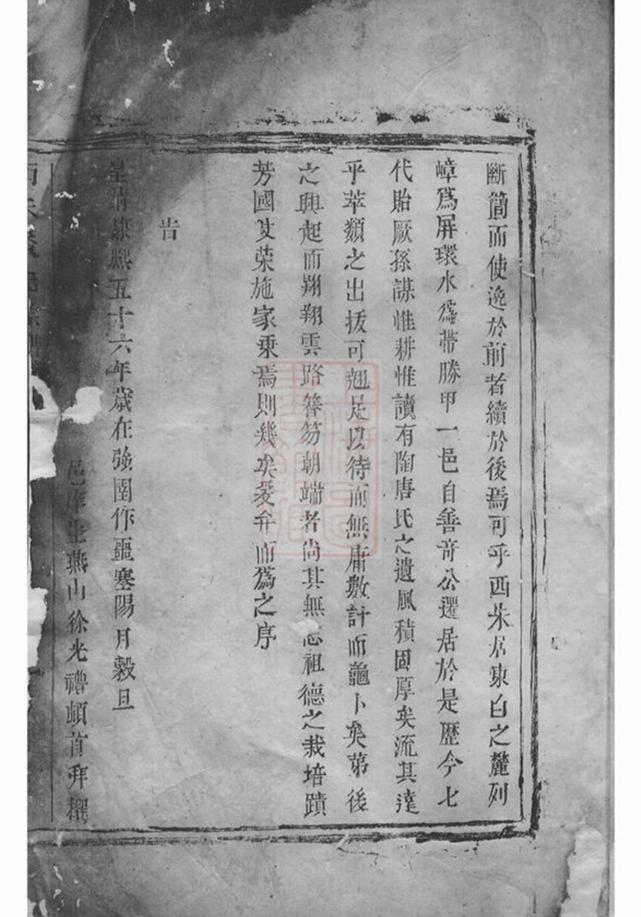 斷簡而使逸於前者續於後焉可乎西朱居東白之麓列
嶂爲屏環水爲帶勝甲一邑自善奇公遷居於是歷今七
代貽厥孫謀惟耕惟讀有陶唐氏之遺風積固厚矣流其達
乎萃類之出拔可翹足以待而無庸數計而龜卜矣第後
之興起而翔翔雲路簪笏朝端者尚其無忘祖德之栽培蹟
芳國史榮施家乘焉則幾矣爰弁而爲之序
旹
皇清康熙五十六年歲在強圉作噩塞陽月穀旦
邑庠生燕山徐光禮頓首拜撰